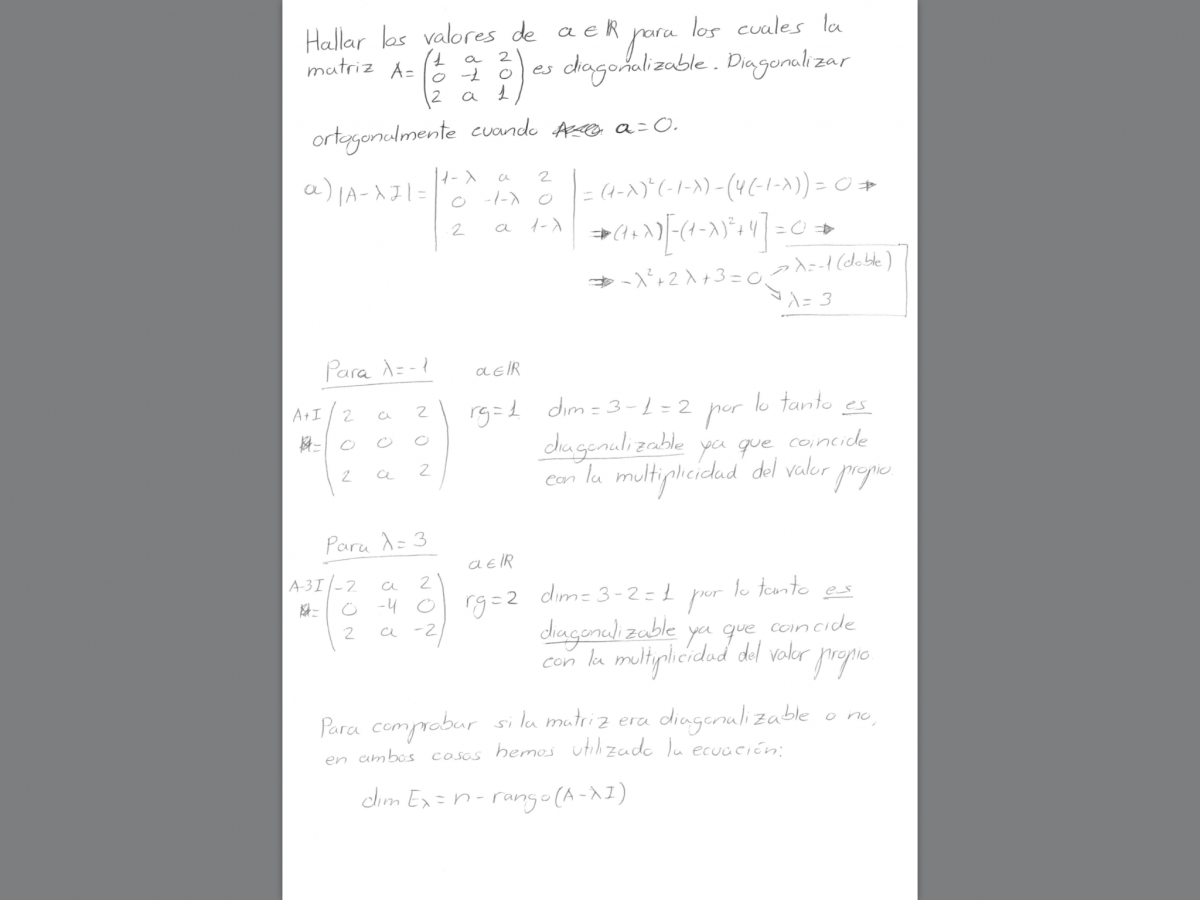 Hallar los valores de a ∈ ℝ para los cuales la
matriz A= (1 a 2
0 -1 0
2 a 1) es diagonalizable. Diagonalizar
ortogonalmente cuando a=0.
a) |A-λI| = |1-λ a 2
0 -1-λ 0
2 a 1-λ| = (1-λ)²(-1-λ)-(4(-1-λ)) = 0 ⇒
⇒ (1+λ)[-(1-λ)²+4] = 0 ⇒
⇒ -λ²+2λ+3=0 ↗ λ=-1 (doble)
↘ λ=3
Para λ=-1 a∈ℝ
A+I = (2 a 2
0 0 0
2 a 2) rg=1 dim = 3-1 = 2 por lo tanto es
diagonalizable ya que coincide
con la multiplicidad del valor propio.
Para λ=3 a∈ℝ
A-3I = (-2 a 2
0 -4 0
2 a -2) rg=2 dim = 3-2 = 1 por lo tanto es
diagonalizable ya que coincide
con la multiplicidad del valor propio.
Para comprobar si la matriz era diagonalizable o no,
en ambos casos hemos utilizado la ecuación:
dim Eλ = n - rango(A-λI)